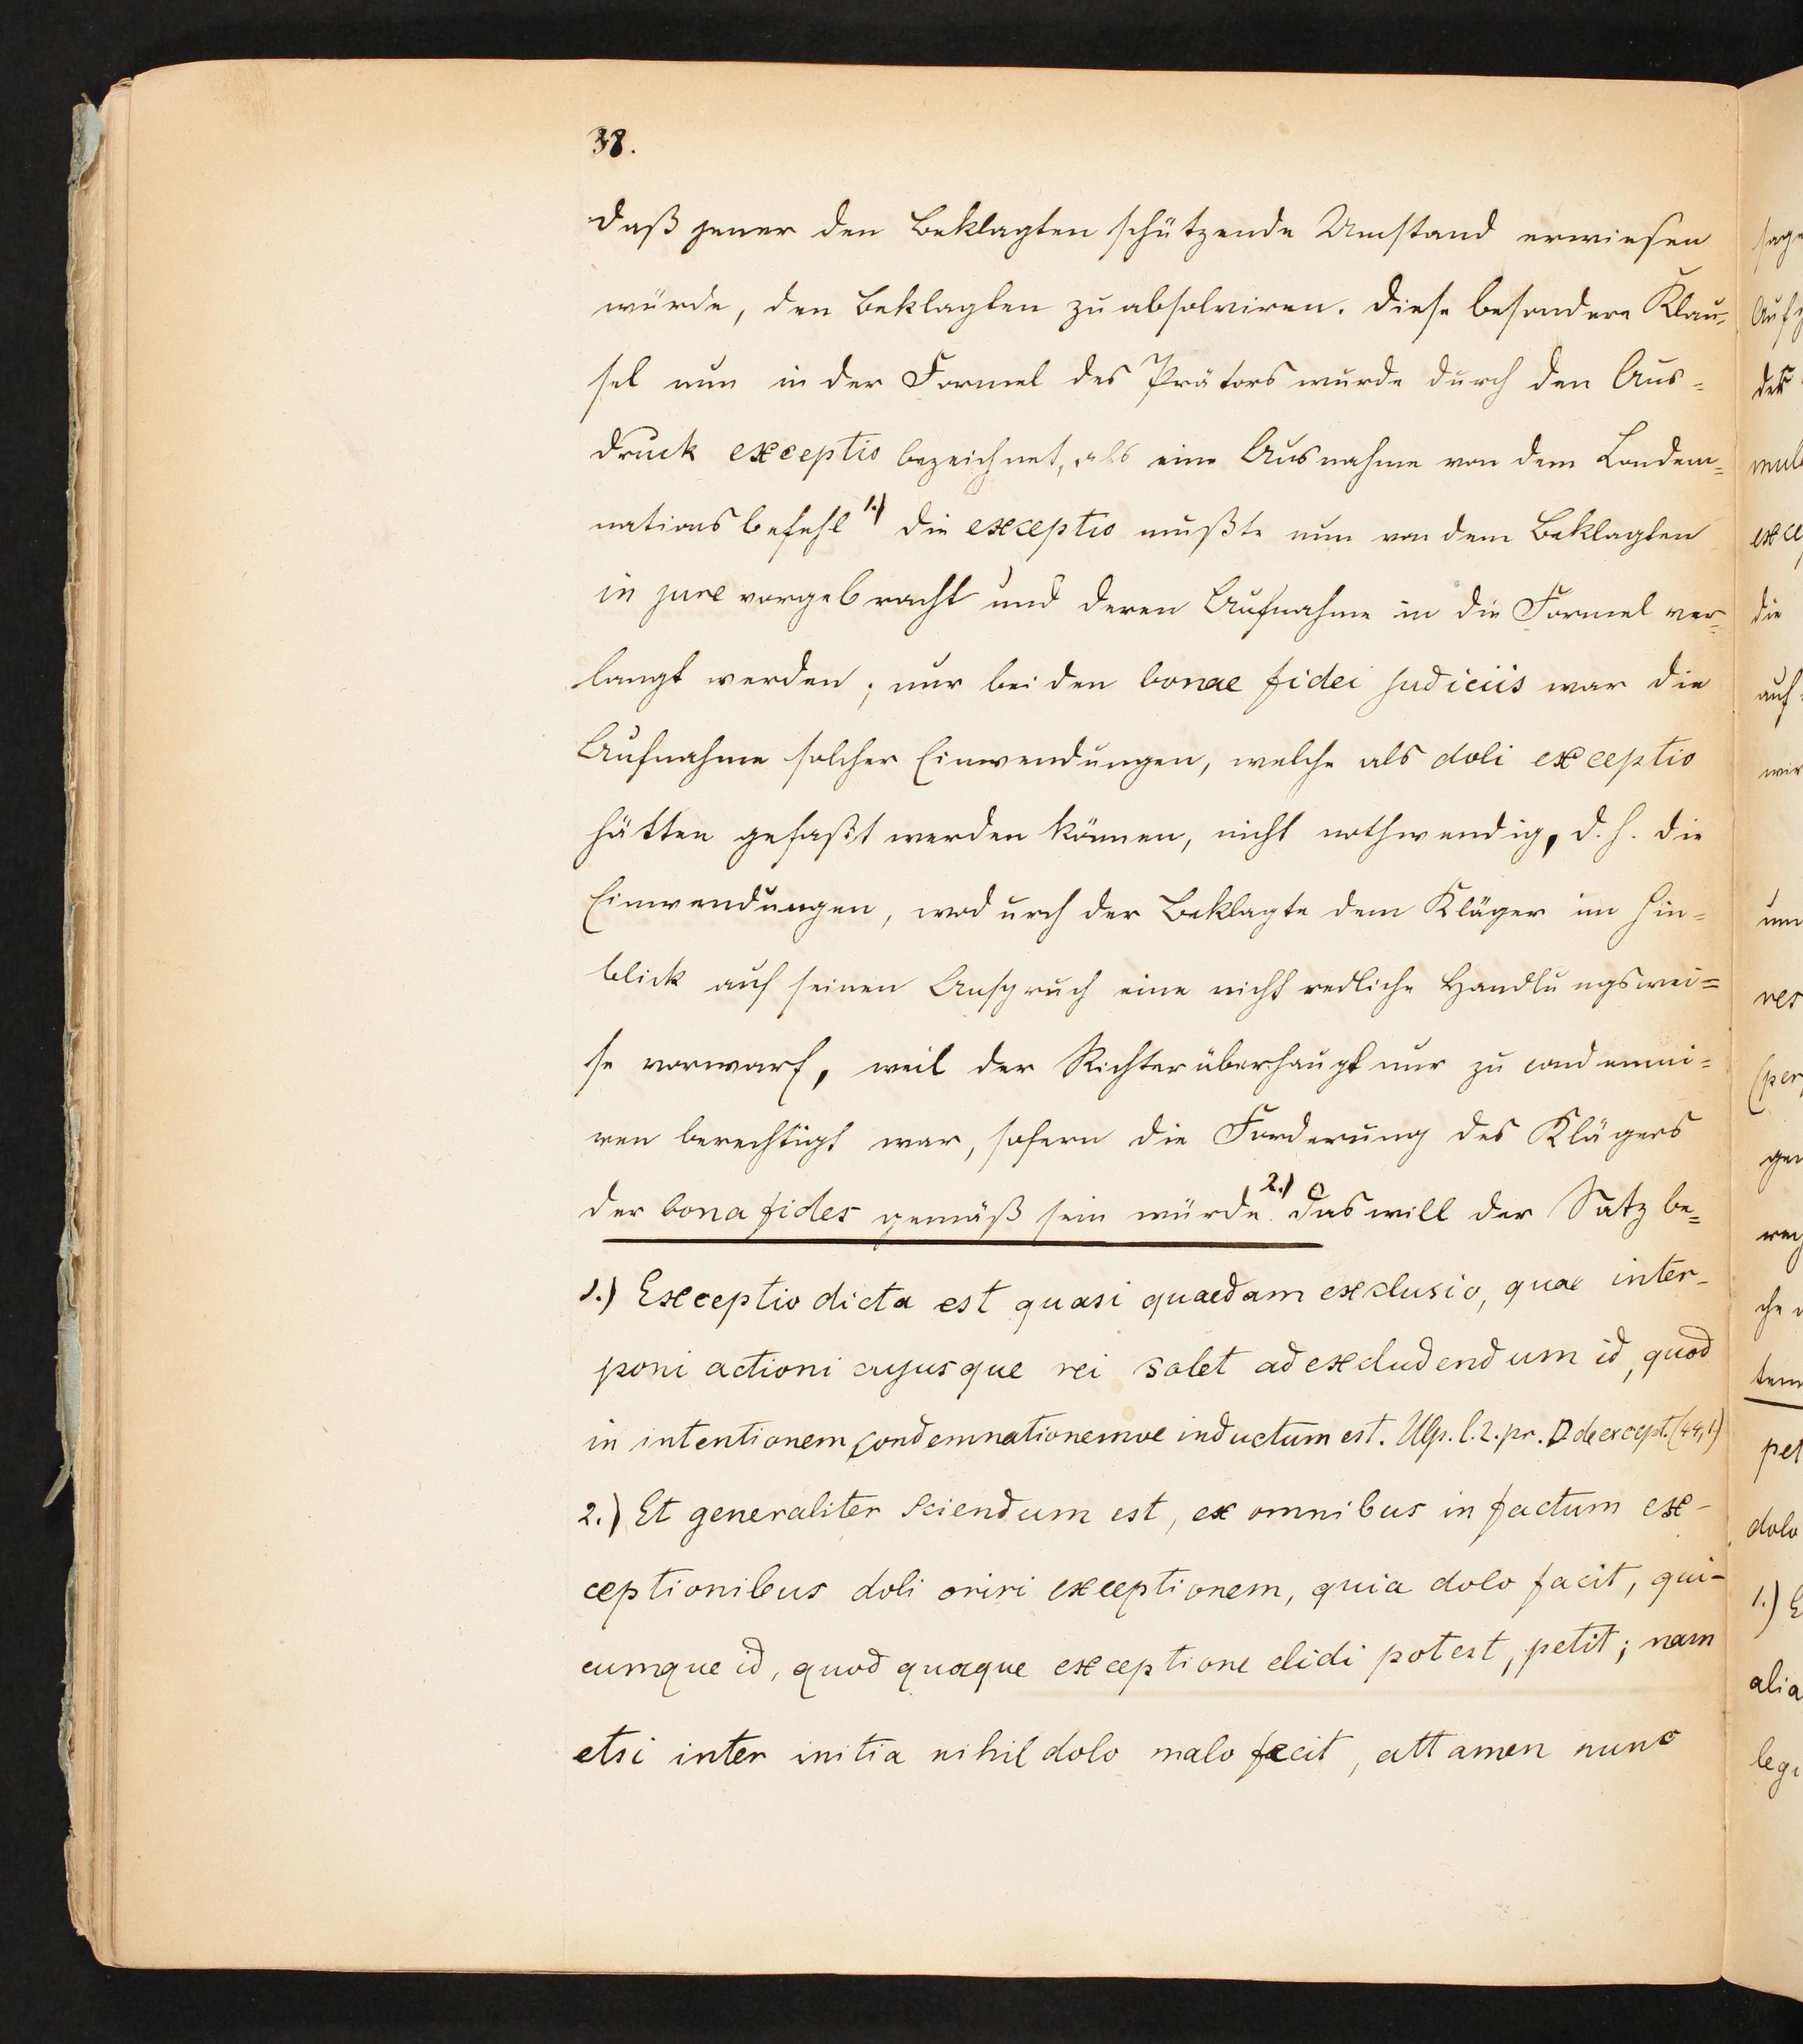 38.
daß jener den Beklagten schützende Umstand erwiesen
würde, den Beklagten zu absolviren. Diese besondere Klau-
sel nun in der Formel des Prätors wurde durch den Aus-
druck exceptio bezeichnet, als eine Ausnahme von dem Condem-
nationsbefehl 1.) Die exceptio mußte nun von dem Beklagten
in jure vorgebracht und deren Aufnahme in die Formel ver-
langt werden; nur bei den bonae fidei judiciis war die
Aufnahme solcher Einwendungen, welche als doli exceptio
hätten gefaßt werden können, nicht nothwendig, d. h. die
Einwendungen, wodurch der Beklagte dem Kläger im Hin-
blick auf seinen Anspruch eine nicht redliche Handlungswei-
se vorwarf, weil der Richter überhaupt nur zu condemni-
ren berechtigt war, sofern die Forderung des Klägers
der bona fides gemäß sein würde. 2.) Das will der Satz be-
1.) Exceptio dicta est quasi quaedam exclusio, quae inter-
poni actioni cujusque rei solet ad excludendum id, quod
in intentionem condemnationemve inductum est. Ulp. l. 2. pr. D de except. (44,1)
2.) Et generaliter sciendum est, ex omnibus in factum ex-
ceptionibus doli oriri exceptionem, quia dolo facit, qui-
cumque id, quod quaque exceptione elidi potest, petit; nam
etsi inter initia nihil dolo malo fecit, attamen nunc